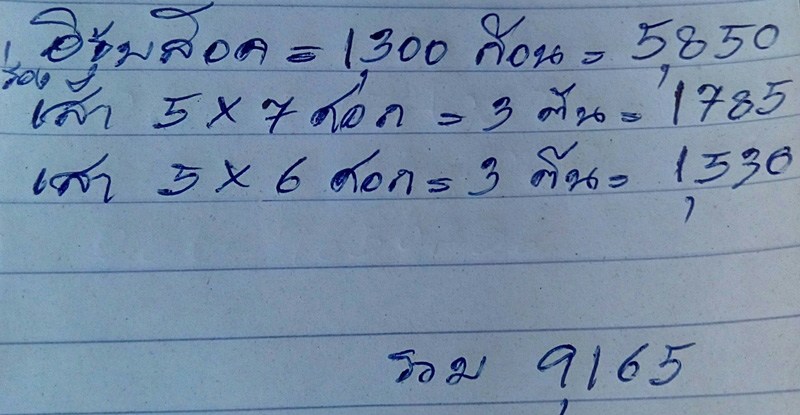 อิฐบล๊อค = 1,300 ก้อน = 5,850
ร่อง
เสา 5 X 7 ศอก = 3 ต้น = 1785
เสา 5 X 6 ศอก = 3 ต้น = 1,530
รวม 9,165